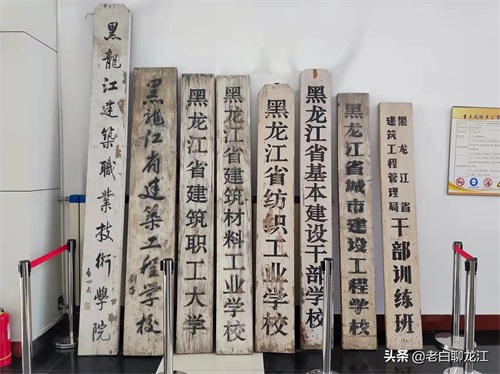 黑龍江建築職業技術學院
黑龙江省建築工程学校
黑龙江省建筑职工大学
黑龙江省建筑材料工业学校
黑龙江省纺织工业学校
黑龙江省基本建设干部学校
黑龙江省城市建设工程学校
黑龙江省
建筑工程管理局
干部训练班
重大风险点公告
头条 @老白聊龙江